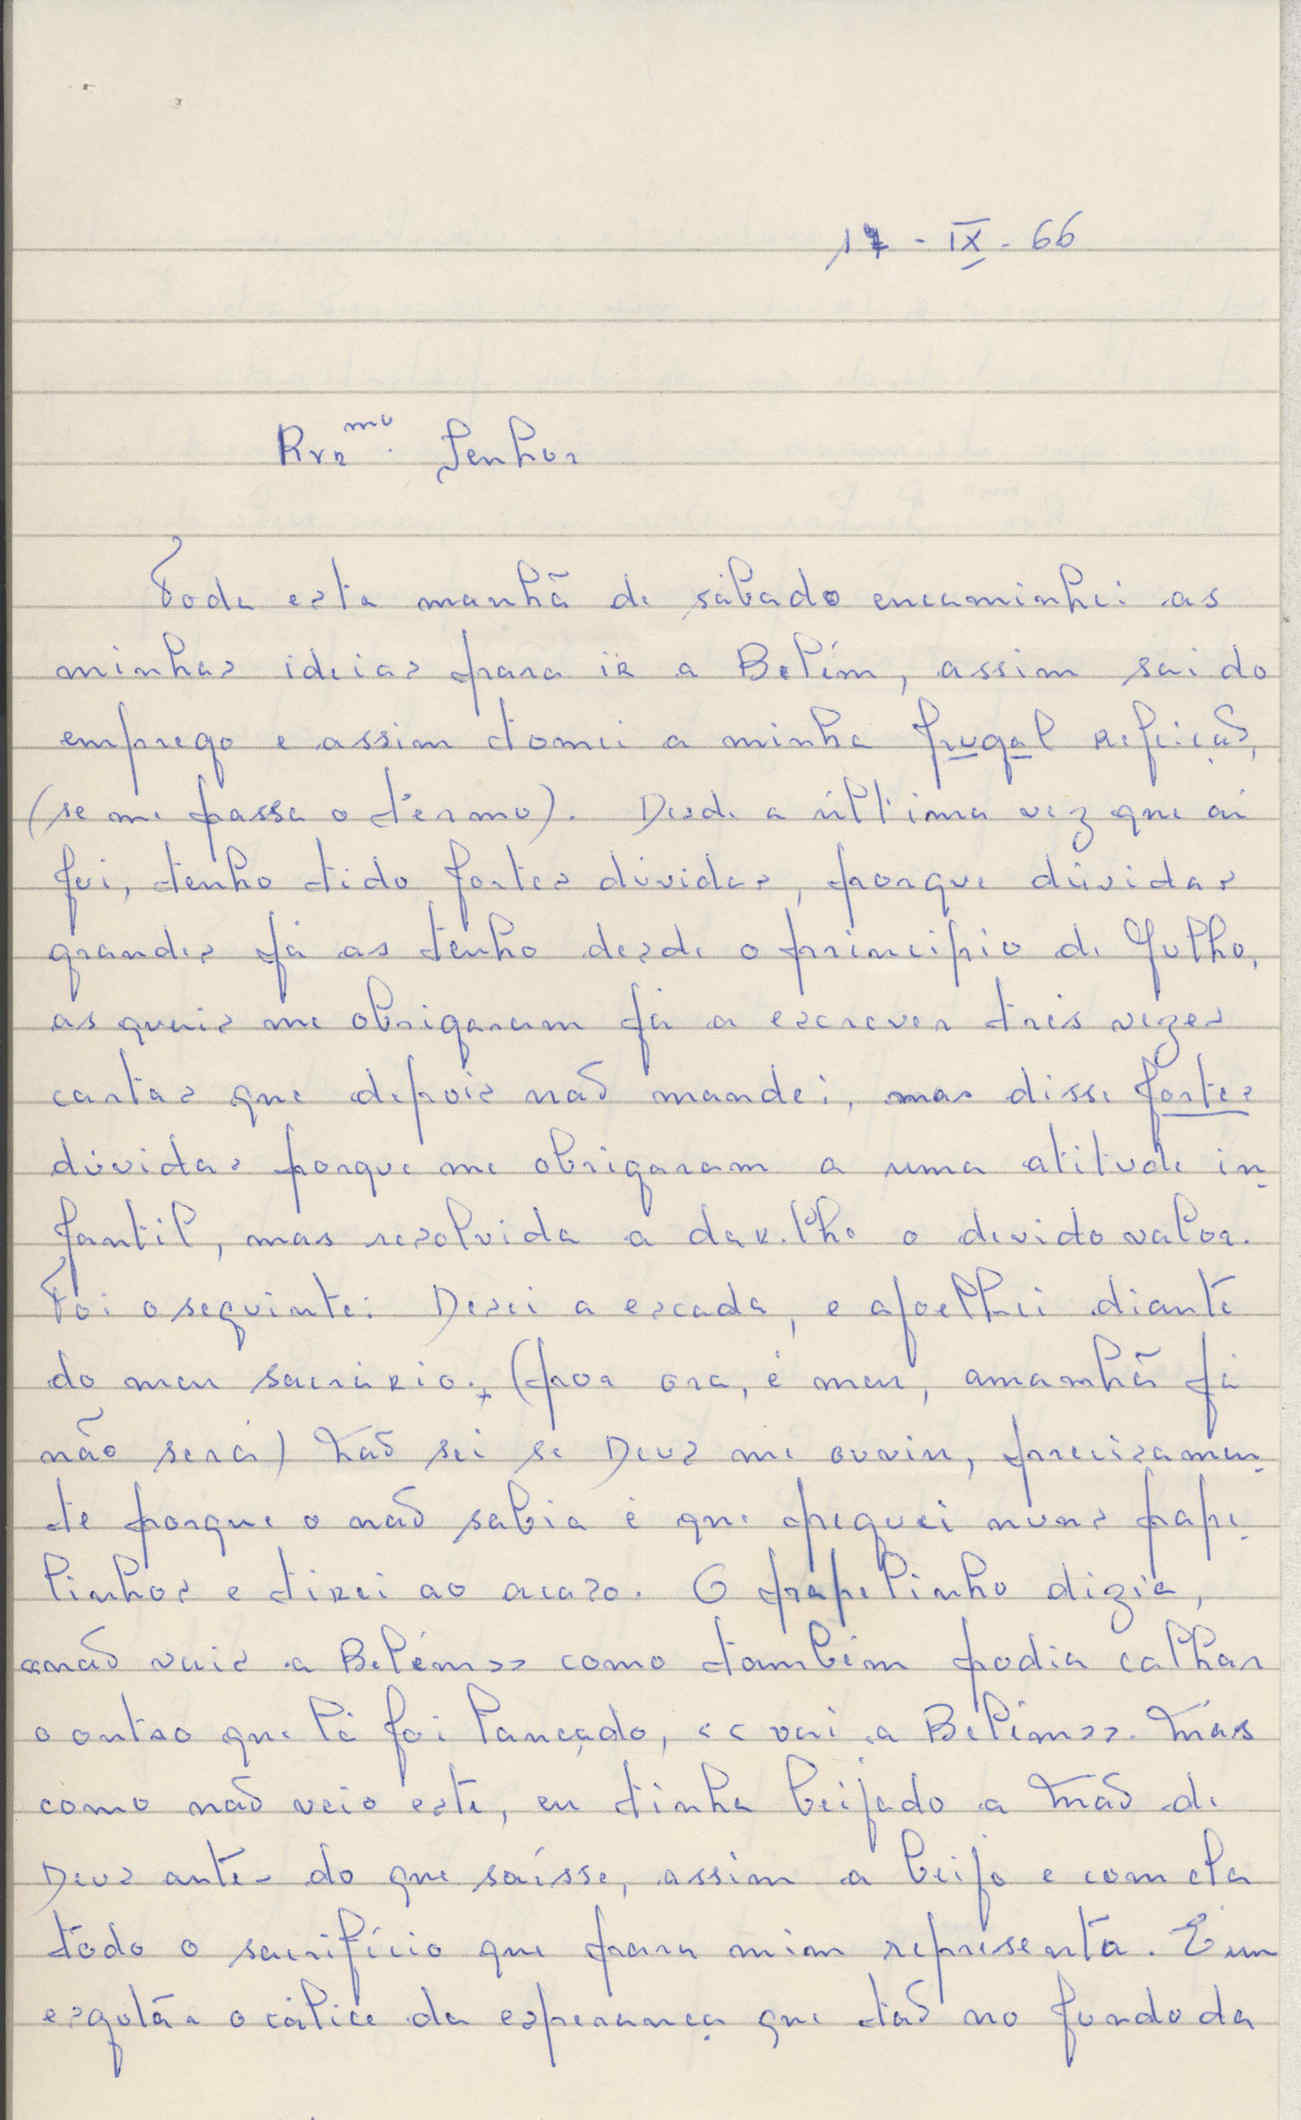 17 - IX - 66
Rvmo. Senhor
Toda esta manhã de sábado encaminhei as
minhas ideias para ir a Belém, assim saí do
emprego e assim tomei a minha frugal refeição,
(se me passa o têrmo). Desde a última vez que aí
fui, tenho tido fortes dúvidas, porque dúvidas
grandes já as tenho desde o princípio de Julho,
as quais me obrigaram já a escrever três vezes
cartas que depois não mandei, mas disse fortes
dúvidas porque me obrigaram a uma atitude in-
fantil, mas resolvida a dar-lhe o devido valor.
Foi o seguinte: Desci a escada, e ajoelhei diante
do meu sacrário. (por ora, é meu, amanhã já
não será) Não sei se Deus me ouviu, precisamen-
te porque o não sabia é que peguei nuns pape-
linhos e tirei ao acaso. O papelinho dizia,
«não vais a Belém» como também podia calhar
o outro que lá foi lançado, «vai a Belém». Mas
como não veio este, eu tinha beijado a Mão de
Deus antes do que saísse, assim a beijo e com ela
todo o sacrifício que para mim representa. É um
esgotar o cálice da esperança que tão no fundo da